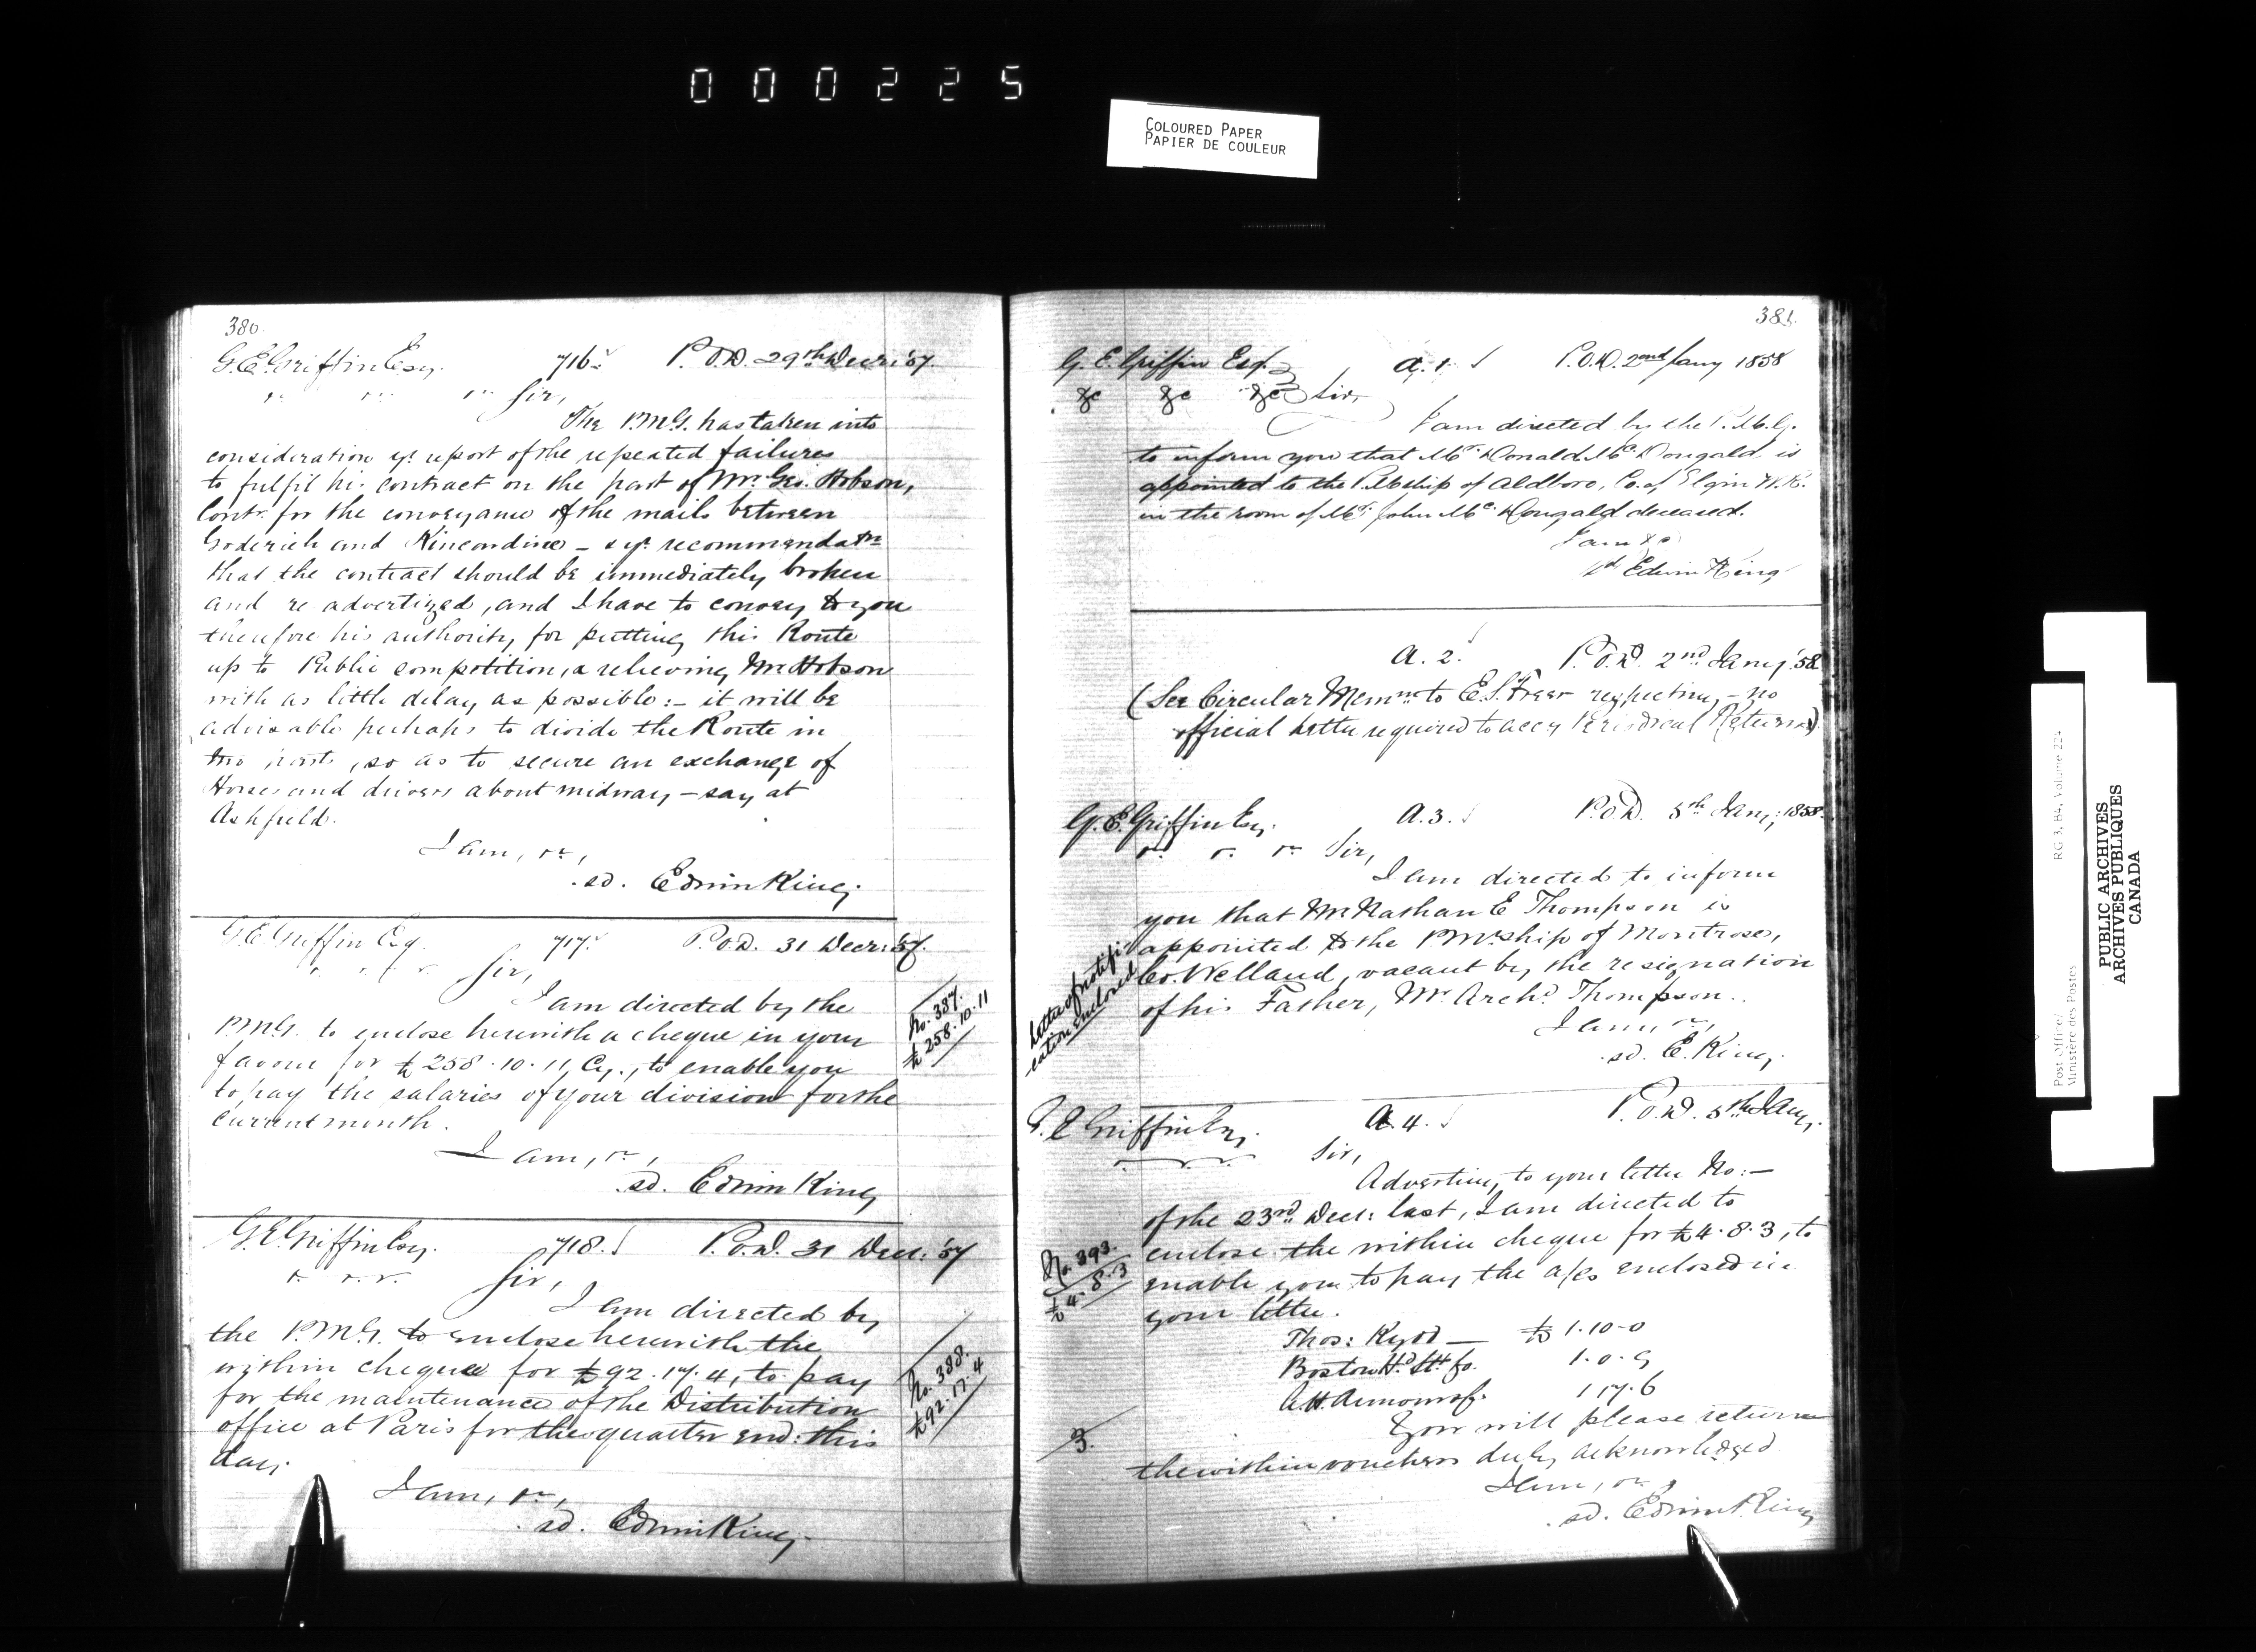 000225
COLOURED PAPER
PAPIER DE COULEUR
380.
G.E. Griffin Esq. 716. P.O.D. 29th Decr. '57.
" " " Sir,
The P.M.G. has taken into
consideration yr. report of the repeated failures
to fulfil his contract on the part of Mr. Geo. Hobson,
Contr. for the conveyance of the mails between
Goderich and Kincardine – & yr. recommendatn
that the contract should be immediately broken
and re advertized, and I have to convey to you
therefore his authority for putting this Route
up to Public competition, & relieving Mr. Hobson
with as little delay as possible:– it will be
advisable perhaps to divide the Route in
two parts, so as to secure an exchange of
Horses and drivers about midway – say at
Ashfield.
I am, &c,
sd. Edwin King.
G.E. Griffin Esq. 717. P.O.D. 31 Decr. '57.
" " " Sir,
I am directed by the
P.M.G. to enclose herewith a cheque in your
favour for £258.10.11 Cy., to enable you
to pay the salaries of your division for the
current month.
I am, &c,
sd. Edwin King
No. 387.
£258.10.11
G.E. Griffin Esq. 718. P.O.D. 31 Decr. '57
&c. &c. &c. Sir,
I am directed by
the P.M.G. to enclose herewith the
within cheque for £92.17.4, to pay
for the maintenance of the Distribution
office at Paris for the quarter end: this
day.
I am, &c,
sd. Edwin King.
No. 388.
£92.17.4
381.
G. E. Griffin Esq. A. 1. P.O.D. 2nd Jany 1858
&c &c &c Sir,
I am directed by the P.M.G.
to inform you that Mr. Donald McDougald is
appointed to the P.Mship of Aldboro, Co. of Elgin W.R.
in the room of Mr. John McDougald deceased.
I am &c
sd Edwin King
A. 2. P.O.D. 2nd Jany. '58
(See Circular Memn. to E.S. Freer respecting – no
official letter required to accy Periodical Returns)
G.E. Griffin Esq. A. 3. P.O.D. 5th Jany. 1858.
&c. &c. &c. Sir,
I am directed to inform
you that Mr Nathan E Thompson is
appointed to the P.Mrship of Montrose,
Co. Welland, vacant by the resignation
of his Father, Mr. Archd. Thompson.
I am, &c,
sd. E. King.
Letter of notifi-
cation enclosed
G.E. Griffin Esq. A. 4. P.O.D. 5th Jany.
Sir,
Adverting to your letter No:–
of the 23rd Decr: last, I am directed to
enclose the within cheque for £4.8.3, to
enable you to pay the a/cs enclosed in
your letter.
No. 393.
£4.8.3
Thos: Kydd — £1.10-0
Boston Hd. St. Co. 1.0.9
A.H. Armour & Co. 1 17.6
You will please return
the within vouchers duly acknowledged
I am, &c,
sd. Edwin King
3.
Post Office/
Ministère des Postes
RG 3, B4, Volume 224
PUBLIC ARCHIVES
ARCHIVES PUBLIQUES
CANADA